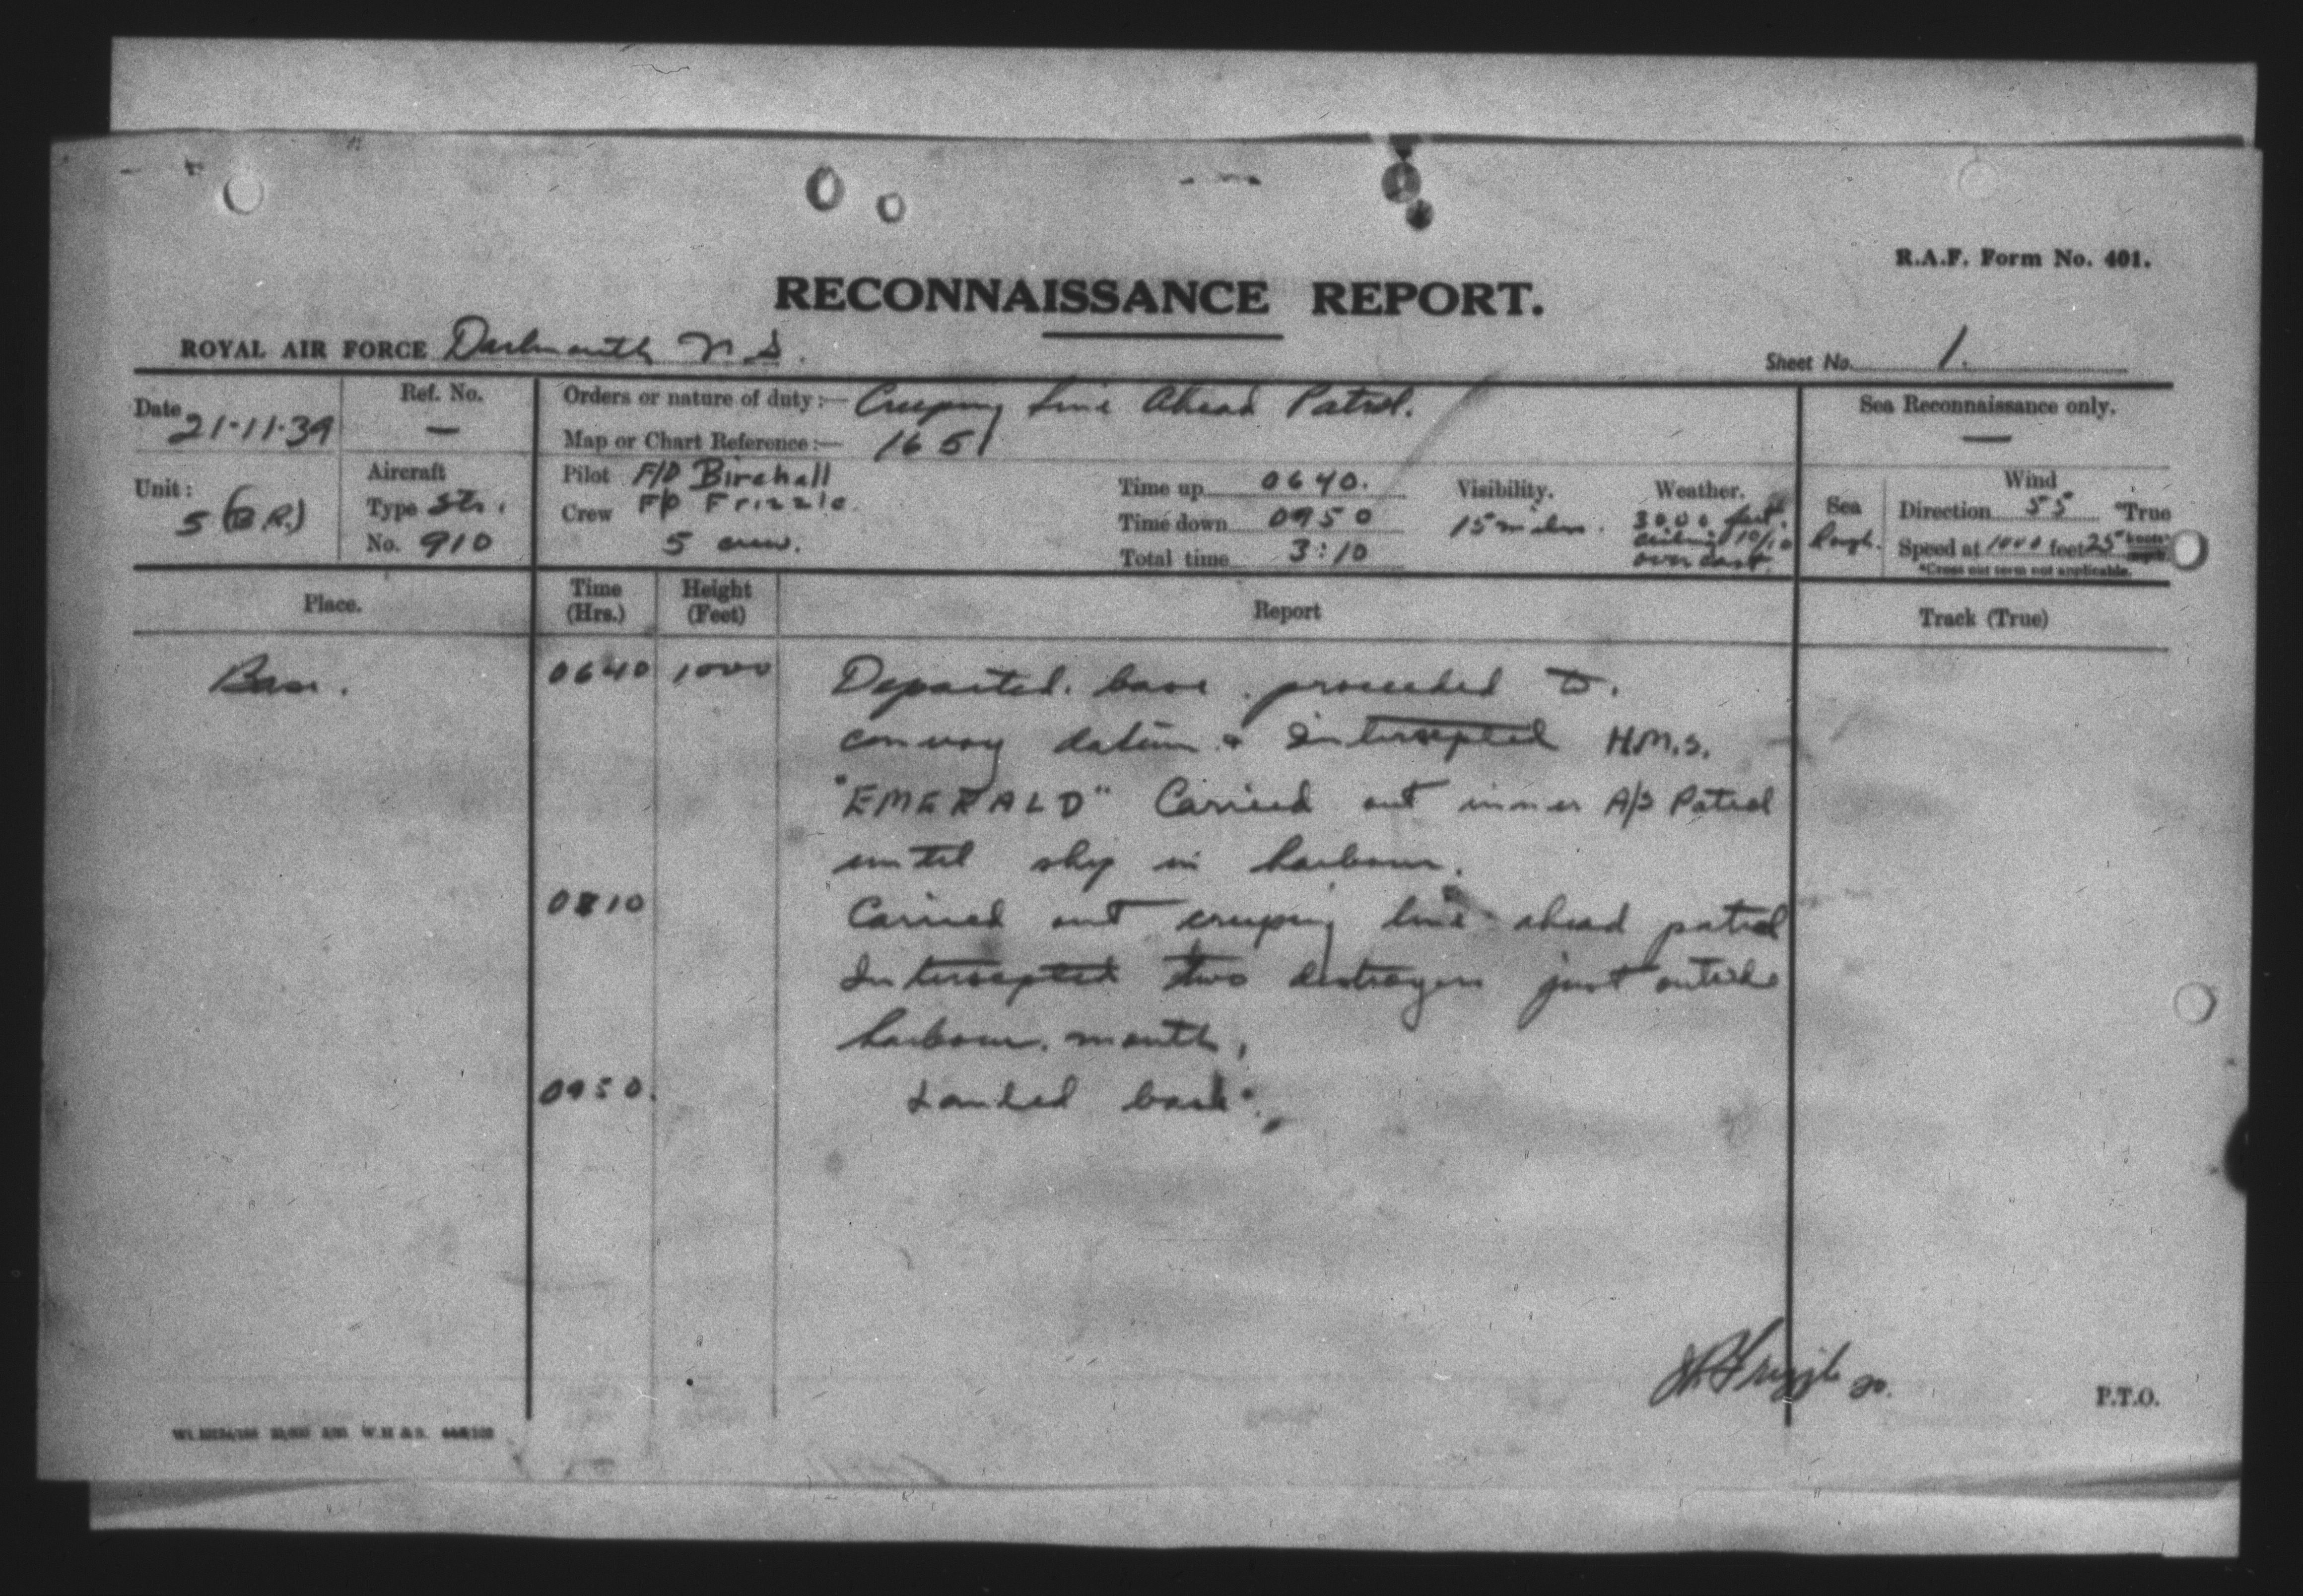 R.A.F. Form No. 401.
RECONNAISSANCE REPORT.
ROYAL AIR FORCE Dartmouth N.S.
Sheet No. 1.
Date 21-11-39
Ref. No. —
Orders or nature of duty:— Creeping Line Ahead Patrol.
Map or Chart Reference:— 1651
Sea Reconnaissance only.
—
Unit: 5 (B.R.)
Aircraft
Type Str.
No. 910
Pilot F/O Birchall
Crew F/O Frizzle
5 crew.
Time up 0640.
Time down 0950
Total time 3:10
Visibility.
15 miles.
Weather.
3000 feet
ceiling 10/10
overcast.
Sea
Rough.
Wind
Direction 55 °True
Speed at 1000 feet 25 knots*
*Cross out term not applicable.
Place.
Time (Hrs.)
Height (Feet)
Report
Track (True)
Base. 0640 1000 Departed. base. proceeded to.
convoy datum & intercepted H.M.S.
"EMERALD" Carried out inner A/S Patrol
until ship in harbour.
0810 Carried out creeping line ahead patrol
Intercepted two destroyers just outside
harbour. mouth.
0950. Landed base.
P.T.O.
W.H & S.